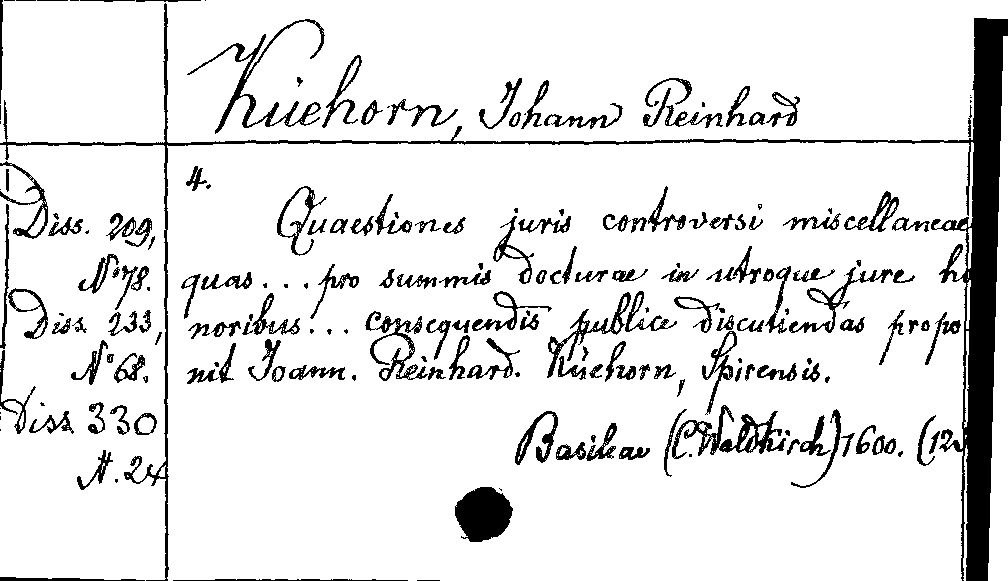 Küehorn, Johann Reinhard
4.
Diss. 209,
No 78.
Diss. 233,
No 68.
Diss. 330
N. 24
Quaestiones juris controversi miscellaneae
quas ... pro summis docturae in utroque jure ho
noribus ... consequendis publice discutiendas propo
nit Joann. Reinhard. Küehorn, Spirensis.
Basileae (C. Waldkirch) 1600. (12